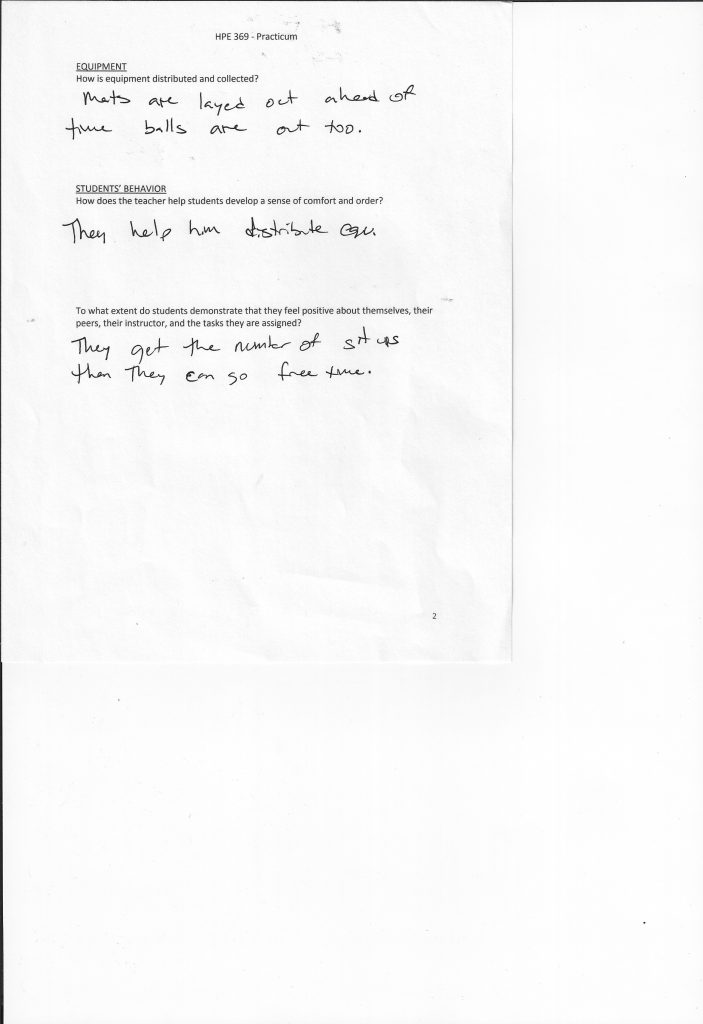 HPE 369 - Practicum
EQUIPMENT
How is equipment distributed and collected?
Mats are layed out ahead of
time balls are out too.
STUDENTS' BEHAVIOR
How does the teacher help students develop a sense of comfort and order?
They help him distribute equ.
To what extent do students demonstrate that they feel positive about themselves, their
peers, their instructor, and the tasks they are assigned?
They get the number of sit ups
then They can go free time.
2